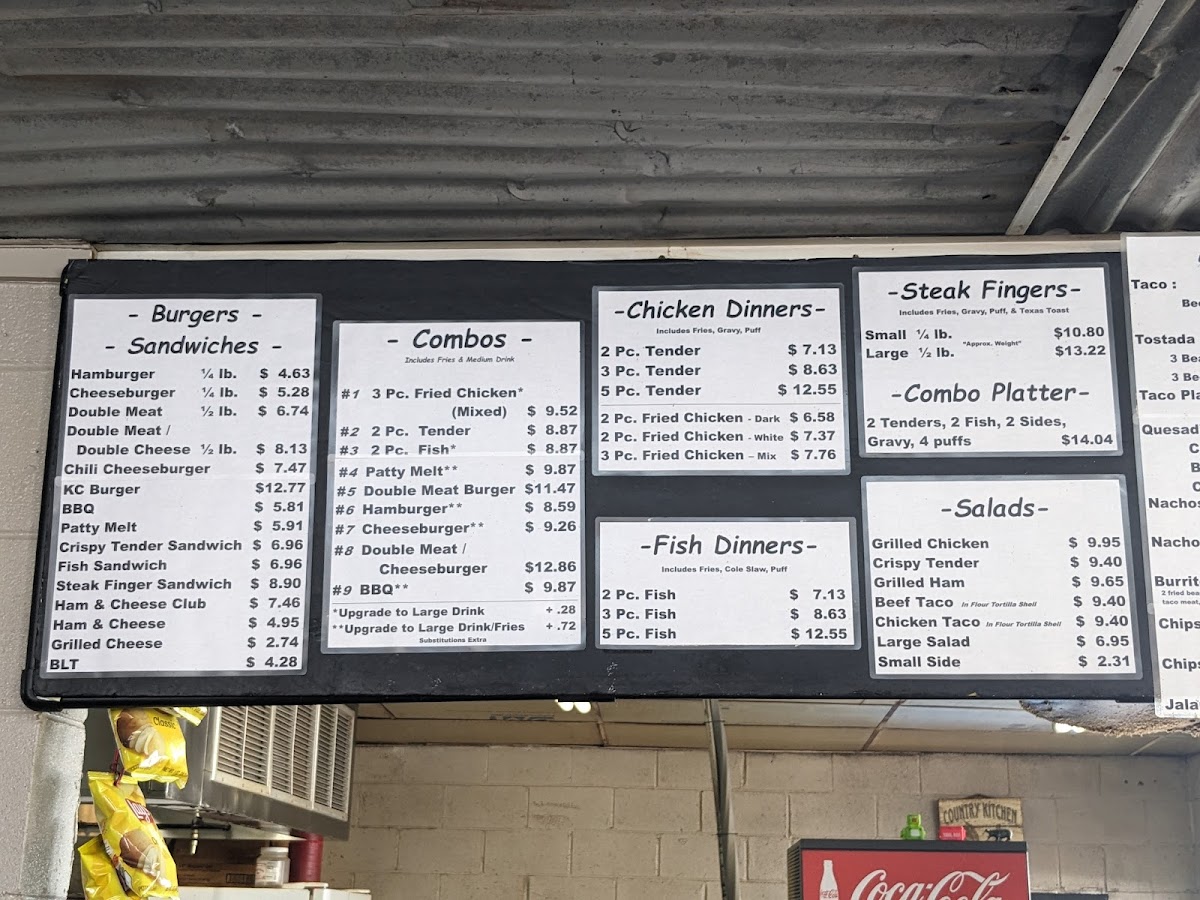 - Burgers -
- Sandwiches -
Hamburger ¼ lb. $ 4.63
Cheeseburger ¼ lb. $ 5.28
Double Meat ½ lb. $ 6.74
Double Meat /
Double Cheese ½ lb. $ 8.13
Chili Cheeseburger $ 7.47
KC Burger $12.77
BBQ $ 5.81
Patty Melt $ 5.91
Crispy Tender Sandwich $ 6.96
Fish Sandwich $ 6.96
Steak Finger Sandwich $ 8.90
Ham & Cheese Club $ 7.46
Ham & Cheese $ 4.95
Grilled Cheese $ 2.74
BLT $ 4.28
- Combos -
Includes Fries & Medium Drink
#1 3 Pc. Fried Chicken*
(Mixed) $ 9.52
#2 2 Pc. Tender $ 8.87
#3 2 Pc. Fish* $ 8.87
#4 Patty Melt** $ 9.87
#5 Double Meat Burger $11.47
#6 Hamburger** $ 8.59
#7 Cheeseburger** $ 9.26
#8 Double Meat /
Cheeseburger $12.86
#9 BBQ** $ 9.87
*Upgrade to Large Drink + .28
**Upgrade to Large Drink/Fries + .72
Substitutions Extra
-Chicken Dinners-
Includes Fries, Gravy, Puff
2 Pc. Tender $ 7.13
3 Pc. Tender $ 8.63
5 Pc. Tender $ 12.55
2 Pc. Fried Chicken - Dark $ 6.58
2 Pc. Fried Chicken - White $ 7.37
3 Pc. Fried Chicken – Mix $ 7.76
-Fish Dinners-
Includes Fries, Cole Slaw, Puff
2 Pc. Fish $ 7.13
3 Pc. Fish $ 8.63
5 Pc. Fish $ 12.55
-Steak Fingers-
Includes Fries, Gravy, Puff, & Texas Toast
Small ¼ lb. $10.80
"Approx. Weight"
Large ½ lb. $13.22
-Combo Platter-
2 Tenders, 2 Fish, 2 Sides,
Gravy, 4 puffs $14.04
-Salads-
Grilled Chicken $ 9.95
Crispy Tender $ 9.40
Grilled Ham $ 9.65
Beef Taco In Flour Tortilla Shell $ 9.40
Chicken Taco In Flour Tortilla Shell $ 9.40
Large Salad $ 6.95
Small Side $ 2.31
Taco :
Bee
Tostada
3 Bea
3 Be
Taco Pla
Quesad
C
B
C
Nachos
Nacho
Burrit
2 fried bea
taco meat,
Chips
Chips
Jala
Classic
COUNTRY KITCHEN
Coca-Cola